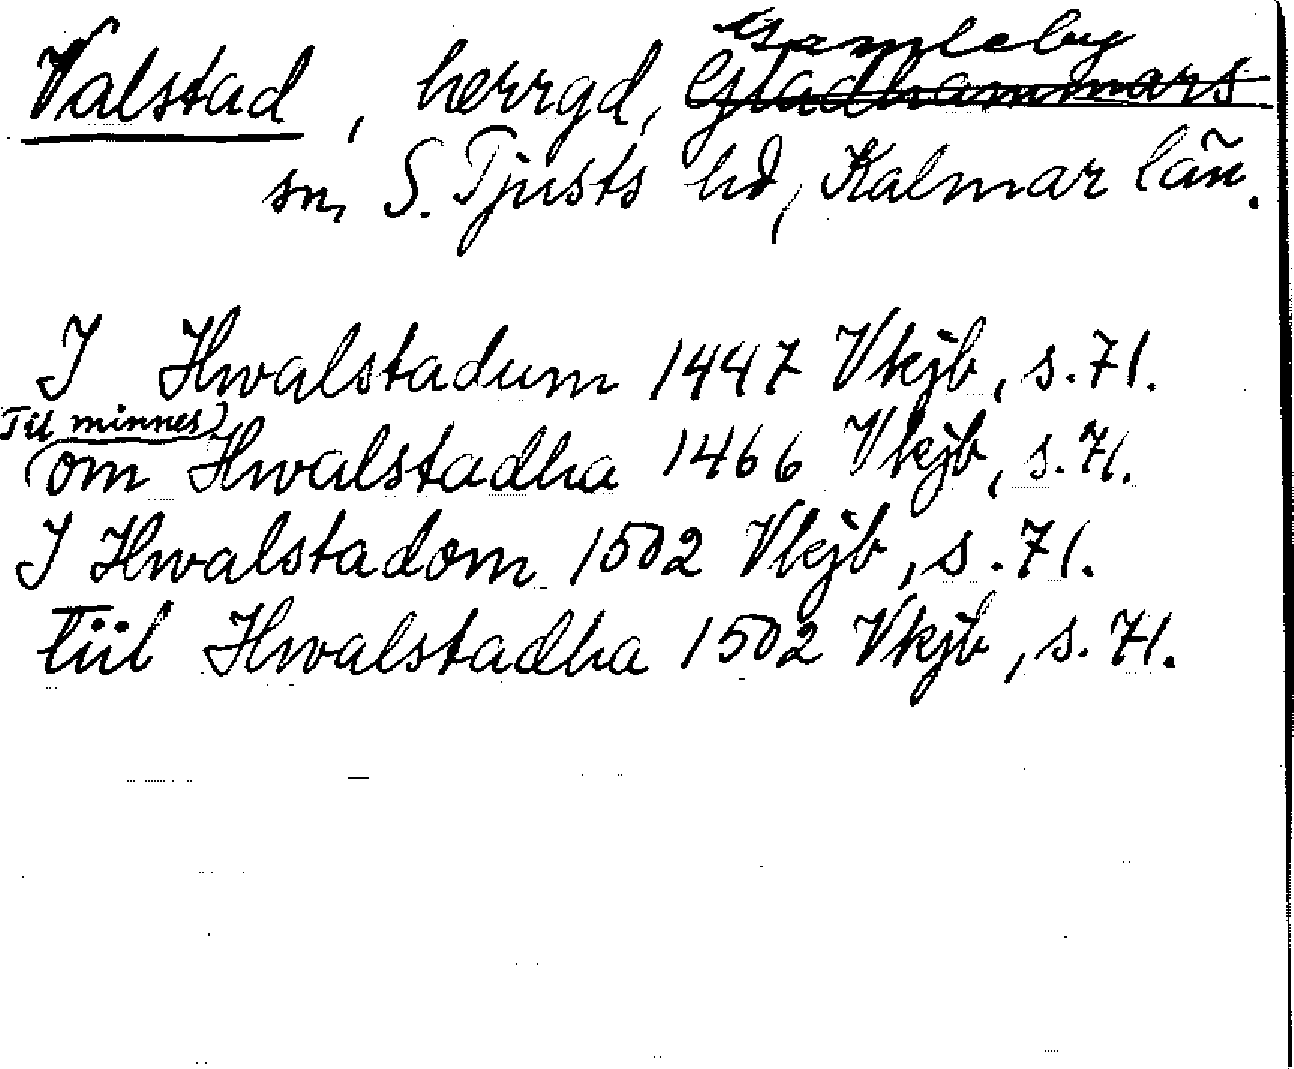 Gamleby
Valstad, herrgd, Gladhammars
sn, S. Tjusts hd, Kalmar län.
I Hwalstadum 1447 Vkjb, s. 71.
Til minnes
om Hwalstadha 1466 Vkjb, s. 71.
I Hwalstadom 1502 Vkjb, s. 71.
Tiil Hwalstadha 1502 Vkjb, s. 71.